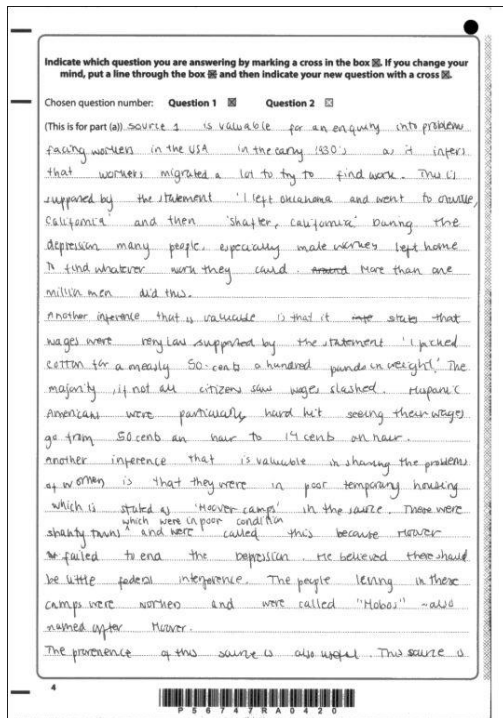 Indicate which question you are answering by marking a cross in the box ☒. If you change your
mind, put a line through the box and then indicate your new question with a cross ☒.
Chosen question number: Question 1 ☒ Question 2 ☒
(This is for part (a)) Source 1 is valuable for an enquiry into problems
facing workers in the USA in the early 1930's as it infers
that workers migrated a lot to try to find work. This is
supported by the statement 'I left Oklahoma and went to
California' and then 'Shafter, California' During the
depression many people, especially male workers left home
to find whatever work they could. More than one
million men did this.
Another inference that is valuable is that it states that
wages were very low supported by the statement 'I picked
cotton for a measly 50-cents a hundred pounds in weight'. The
majority, if not all citizens saw wages slashed. Hispanic
Americans were particularly hard hit seeing their wages
go from 50 cents an hour to 14 cents an hour.
Another inference that is valuable in sharing the problems
of women is that they were in poor temporary housing
which is stated as 'Hoover camps' in the source. There were
which were in poor condition
shanty towns and were called this because Hoover
failed to end the Depression. He believed there should
be little federal interference. The people in these
camps were and were called "Hobos" - also
named after Hoover.
The provenence of this source is also useful. This source is
4
P 5 6 7 4 7 R A 0 4 2 0